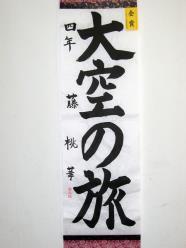 金賞
大空の旅
四年 藤 桃華